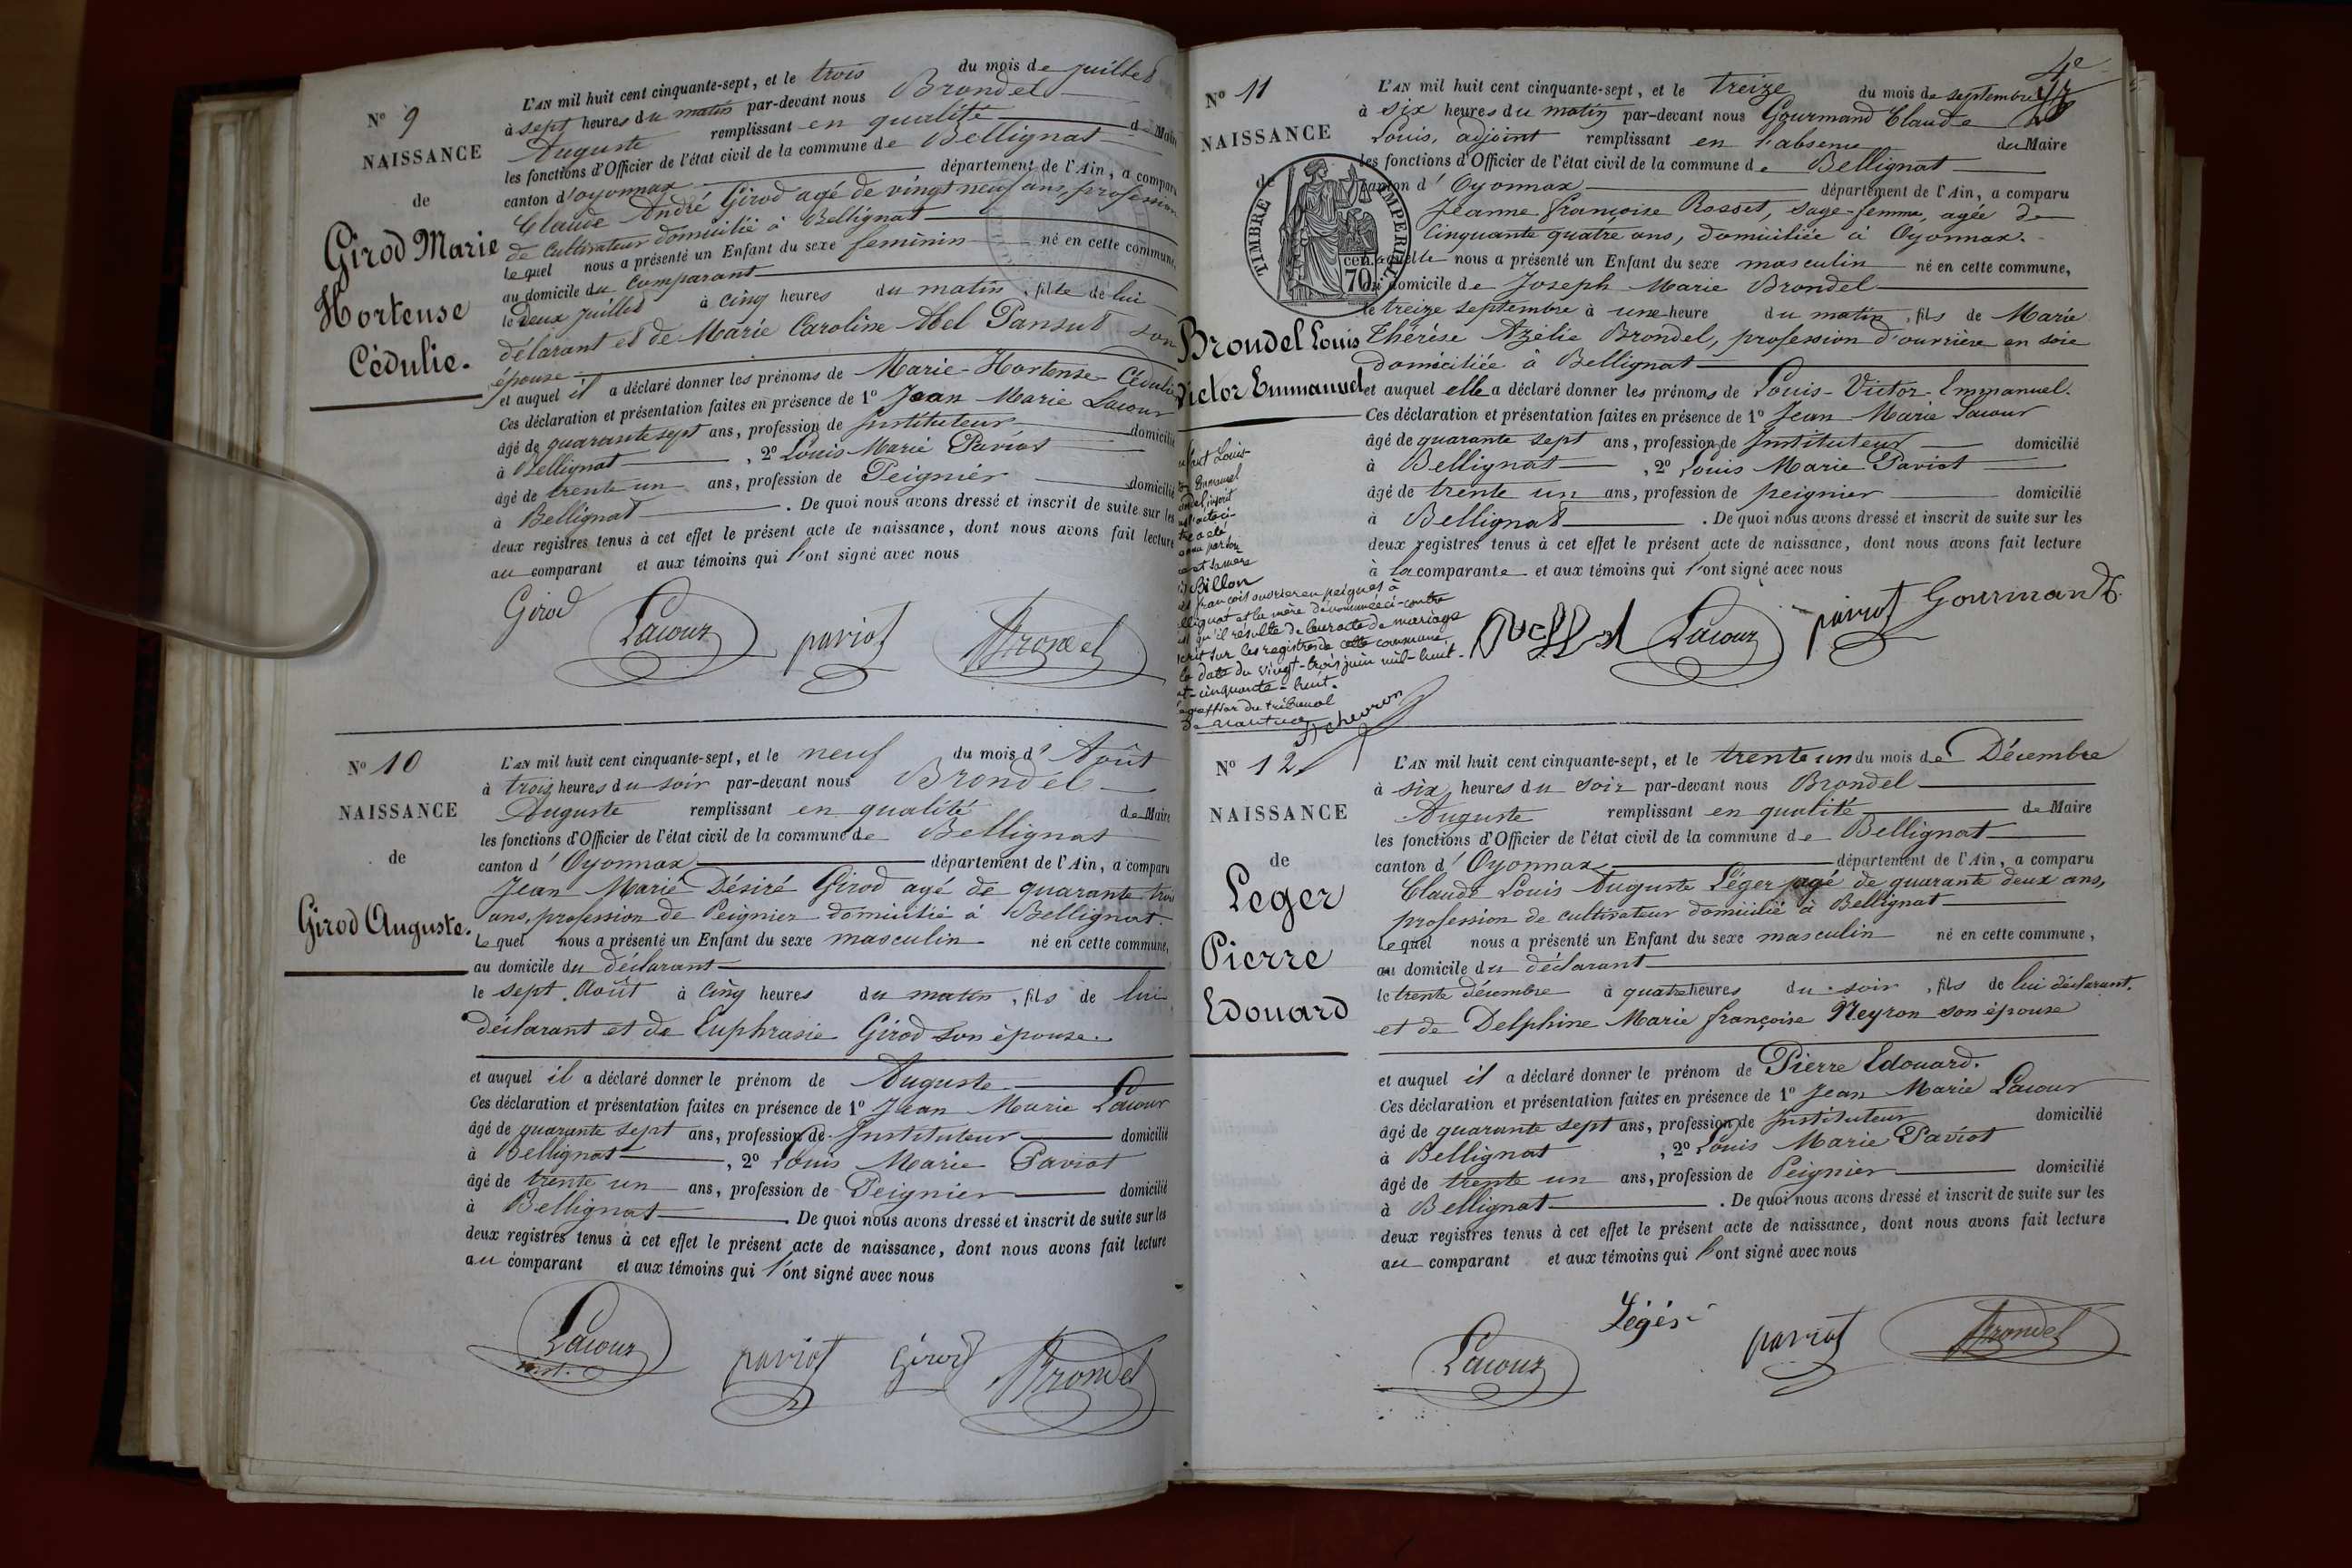 N° 9
NAISSANCE
de
Girod Marie
Hortense
Cédulie.
L'AN mil huit cent cinquante-sept, et le trois du mois de juillet
à sept heures du matin par-devant nous Brondel
Auguste remplissant en qualité de Maire
les fonctions d'Officier de l'état civil de la commune de Bellignat
canton d'oyonnax département de l'Ain, a comparu
Claude André Girod agé de vingt neuf ans, profession
de Cultivateur domicilié à Bellignat
lequel nous a présenté un Enfant du sexe feminin né en cette commune,
au domicile du Comparant
le deux juillet à cinq heures du matin, fille de lui
délarant et de Marie Caroline Abel Pansut son
épouse
et auquel il a déclaré donner les prénoms de Marie-Hortense-Cédulie
Ces déclaration et présentation faites en présence de 1° Jean Marie Lacour
âgé de quarante sept ans, profession de Instituteur domicilié
à Bellignat, 2° Louis Marie Paviot
âgé de trente un ans, profession de Peignier domicilié
à Bellignat. De quoi nous avons dressé et inscrit de suite sur les
deux registres tenus à cet effet le présent acte de naissance, dont nous avons fait lecture
au comparant et aux témoins qui l'ont signé avec nous
Girod Lacour paviot Brondel
N° 10
NAISSANCE
de
Girod Auguste.
L'AN mil huit cent cinquante-sept, et le neuf du mois d'Août
à trois heures du soir par-devant nous Brondel
Auguste remplissant en qualité de Maire
les fonctions d'Officier de l'état civil de la commune de Bellignat
canton d'Oyonnax département de l'Ain, a comparu
Jean Marie Désiré Girod agé de quarante trois
ans, profession de Peignier domicilié à Bellignat
lequel nous a présenté un Enfant du sexe masculin né en cette commune,
au domicile du déclarant
le sept Août à cinq heures du matin, fils de lui
déclarant et de Euphrasie Girod son épouse.
et auquel il a déclaré donner le prénom de Auguste
Ces déclaration et présentation faites en présence de 1° Jean Marie Lacour
âgé de quarante sept ans, profession de Instituteur domicilié
à Bellignat, 2° Louis Marie Paviot
âgé de trente un ans, profession de Peignier domicilié
à Bellignat. De quoi nous avons dressé et inscrit de suite sur les
deux registres tenus à cet effet le présent acte de naissance, dont nous avons fait lecture
au comparant et aux témoins qui l'ont signé avec nous
Lacour inst. paviot Girod Brondel
4e
N° 11
NAISSANCE
de
TIMBRE IMPERIAL
70 cen.
Brondel Louis
Victor Emmanuel
L'AN mil huit cent cinquante-sept, et le treize du mois de septembre
à six heures du matin par-devant nous Gourmand Claude
Louis, adjoint remplissant en l'absence du Maire
les fonctions d'Officier de l'état civil de la commune de Bellignat
canton d'Oyonnax département de l'Ain, a comparu
Jeanne françoise Rosset, sage-femme, agée de
Cinquante quatre ans, domiciliée à Oyonnax.
laquelle nous a présenté un Enfant du sexe masculin né en cette commune,
au domicile de Joseph Marie Brondel
le treize septembre à une heure du matin, fils de Marie
Thérèse Azélie Brondel, profession d'ouvrière en soie
domiciliée à Bellignat
et auquel elle a déclaré donner les prénoms de Louis-Victor-Emmanuel.
Ces déclaration et présentation faites en présence de 1° Jean Marie Lacour
âgé de quarante sept ans, profession de Instituteur domicilié
à Bellignat, 2° Louis Marie Paviot
âgé de trente un ans, profession de peignier domicilié
à Bellignat. De quoi nous avons dressé et inscrit de suite sur les
deux registres tenus à cet effet le présent acte de naissance, dont nous avons fait lecture
à la comparante et aux témoins qui l'ont signé avec nous
Lacour paviot Gourmand
Louis
Emmanuel
inscrit
par son
et sa mère
Billon
françois ouvrier en peignes à
et la mère dénommée ci-contre
qu'il résulte de leur acte de mariage
sur les registres de cette commune
la date du vingt-trois juin mil-huit-
cinquante-huit.
greffier du tribunal
de nantua
N° 12
NAISSANCE
de
Leger
Pierre
Edouard
L'AN mil huit cent cinquante-sept, et le trente un du mois de Décembre
à six heures du soir par-devant nous Brondel
Auguste remplissant en qualité de Maire
les fonctions d'Officier de l'état civil de la commune de Bellignat
canton d'Oyonnax département de l'Ain, a comparu
Claude Louis Auguste Léger agé de quarante deux ans,
profession de cultivateur domicilié à Bellignat
lequel nous a présenté un Enfant du sexe masculin né en cette commune,
au domicile du déclarant
le trente décembre à quatre heures du soir, fils de lui déclarant.
et de Delphine Marie françoise Neyron son épouse
et auquel il a déclaré donner le prénom de Pierre Edouard.
Ces déclaration et présentation faites en présence de 1° Jean Marie Lacour
âgé de quarante sept ans, profession de Instituteur domicilié
à Bellignat, 2° Louis Marie Paviot
âgé de trente un ans, profession de Peignier domicilié
à Bellignat. De quoi nous avons dressé et inscrit de suite sur les
deux registres tenus à cet effet le présent acte de naissance, dont nous avons fait lecture
au comparant et aux témoins qui l'ont signé avec nous
Lacour Légér paviot Brondel